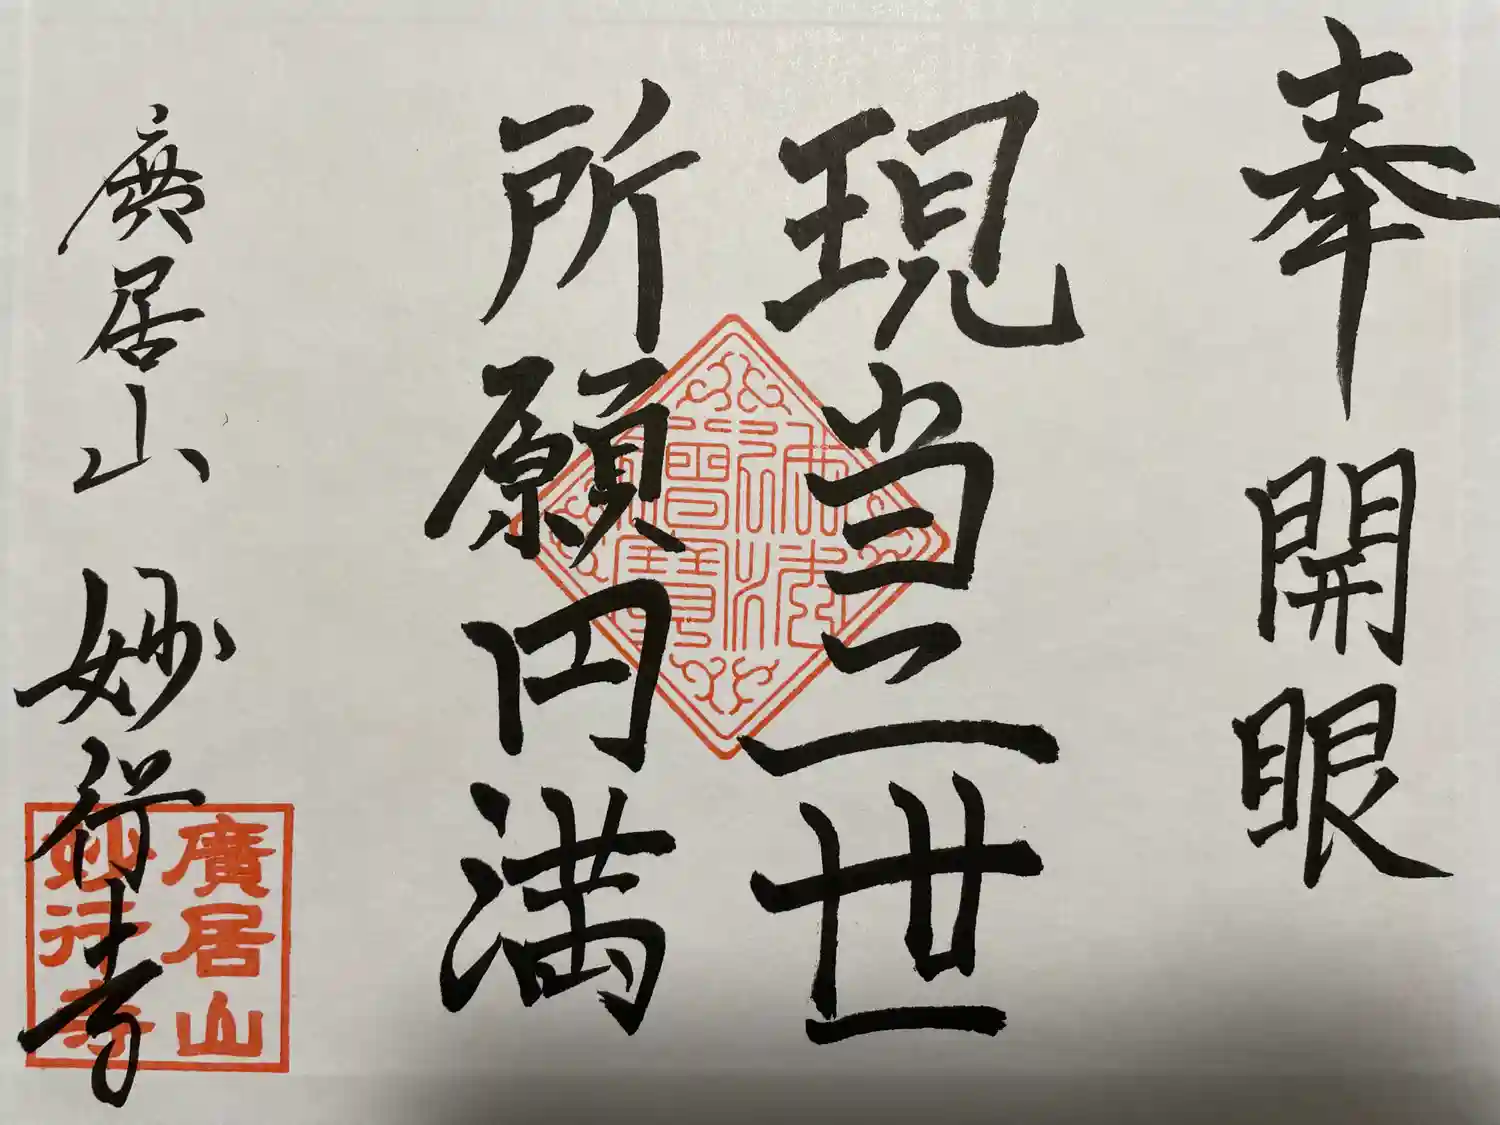 奉 開眼
現当二世
所願円満
廣居山 妙行寺
佛法
僧寶
廣居山
妙行寺